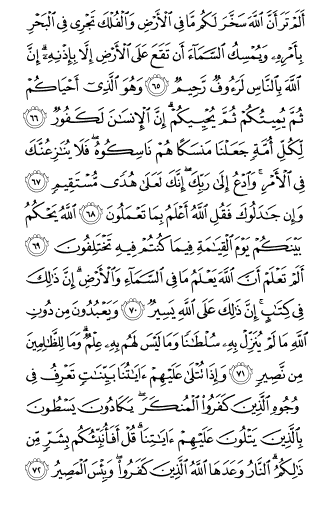 أَلَمْ تَرَ أَنَّ ٱللَّهَ سَخَّرَ لَكُم مَّا فِى ٱلْأَرْضِ وَٱلْفُلْكَ تَجْرِى فِى ٱلْبَحْرِ
بِأَمْرِهِۦ وَيُمْسِكُ ٱلسَّمَآءَ أَن تَقَعَ عَلَى ٱلْأَرْضِ إِلَّا بِإِذْنِهِۦٓ ۗ إِنَّ
ٱللَّهَ بِٱلنَّاسِ لَرَءُوفٌ رَّحِيمٌ ﴿٦٥﴾ وَهُوَ ٱلَّذِىٓ أَحْيَاكُمْ
ثُمَّ يُمِيتُكُمْ ثُمَّ يُحْيِيكُمْ ۗ إِنَّ ٱلْإِنسَٰنَ لَكَفُورٌ ﴿٦٦﴾
لِّكُلِّ أُمَّةٍ جَعَلْنَا مَنسَكًا هُمْ نَاسِكُوهُ ۖ فَلَا يُنَٰزِعُنَّكَ
فِى ٱلْأَمْرِ ۚ وَٱدْعُ إِلَىٰ رَبِّكَ ۖ إِنَّكَ لَعَلَىٰ هُدًى مُّسْتَقِيمٍ ﴿٦٧﴾
وَإِن جَٰدَلُوكَ فَقُلِ ٱللَّهُ أَعْلَمُ بِمَا تَعْمَلُونَ ﴿٦٨﴾ ٱللَّهُ يَحْكُمُ
بَيْنَكُمْ يَوْمَ ٱلْقِيَٰمَةِ فِيمَا كُنتُمْ فِيهِ تَخْتَلِفُونَ ﴿٦٩﴾
أَلَمْ تَعْلَمْ أَنَّ ٱللَّهَ يَعْلَمُ مَا فِى ٱلسَّمَآءِ وَٱلْأَرْضِ ۗ إِنَّ ذَٰلِكَ
فِى كِتَٰبٍ ۚ إِنَّ ذَٰلِكَ عَلَى ٱللَّهِ يَسِيرٌ ﴿٧٠﴾ وَيَعْبُدُونَ مِن دُونِ
ٱللَّهِ مَا لَمْ يُنَزِّلْ بِهِۦ سُلْطَٰنًا وَمَا لَيْسَ لَهُم بِهِۦ عِلْمٌ ۗ وَمَا لِلظَّٰلِمِينَ
مِن نَّصِيرٍ ﴿٧١﴾ وَإِذَا تُتْلَىٰ عَلَيْهِمْ ءَايَٰتُنَا بَيِّنَٰتٍ تَعْرِفُ فِى
وُجُوهِ ٱلَّذِينَ كَفَرُوا۟ ٱلْمُنكَرَ ۖ يَكَادُونَ يَسْطُونَ
بِٱلَّذِينَ يَتْلُونَ عَلَيْهِمْ ءَايَٰتِنَا ۗ قُلْ أَفَأُنَبِّئُكُم بِشَرٍّ مِّن
ذَٰلِكُمُ ۗ ٱلنَّارُ وَعَدَهَا ٱللَّهُ ٱلَّذِينَ كَفَرُوا۟ ۖ وَبِئْسَ ٱلْمَصِيرُ ﴿٧٢﴾